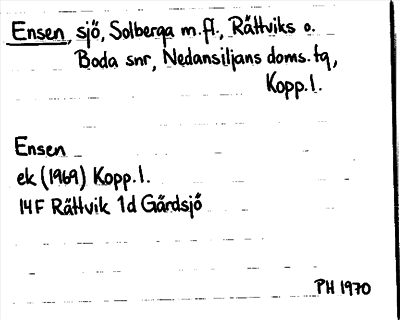 Ensen, sjö, Solberga m.fl., Rättviks o.
Boda snr, Nedansiljans doms. tg,
Kopp.l.
Ensen
ek (1969) Kopp.l.
14F Rättvik 1d Gärdsjö
PH 1970